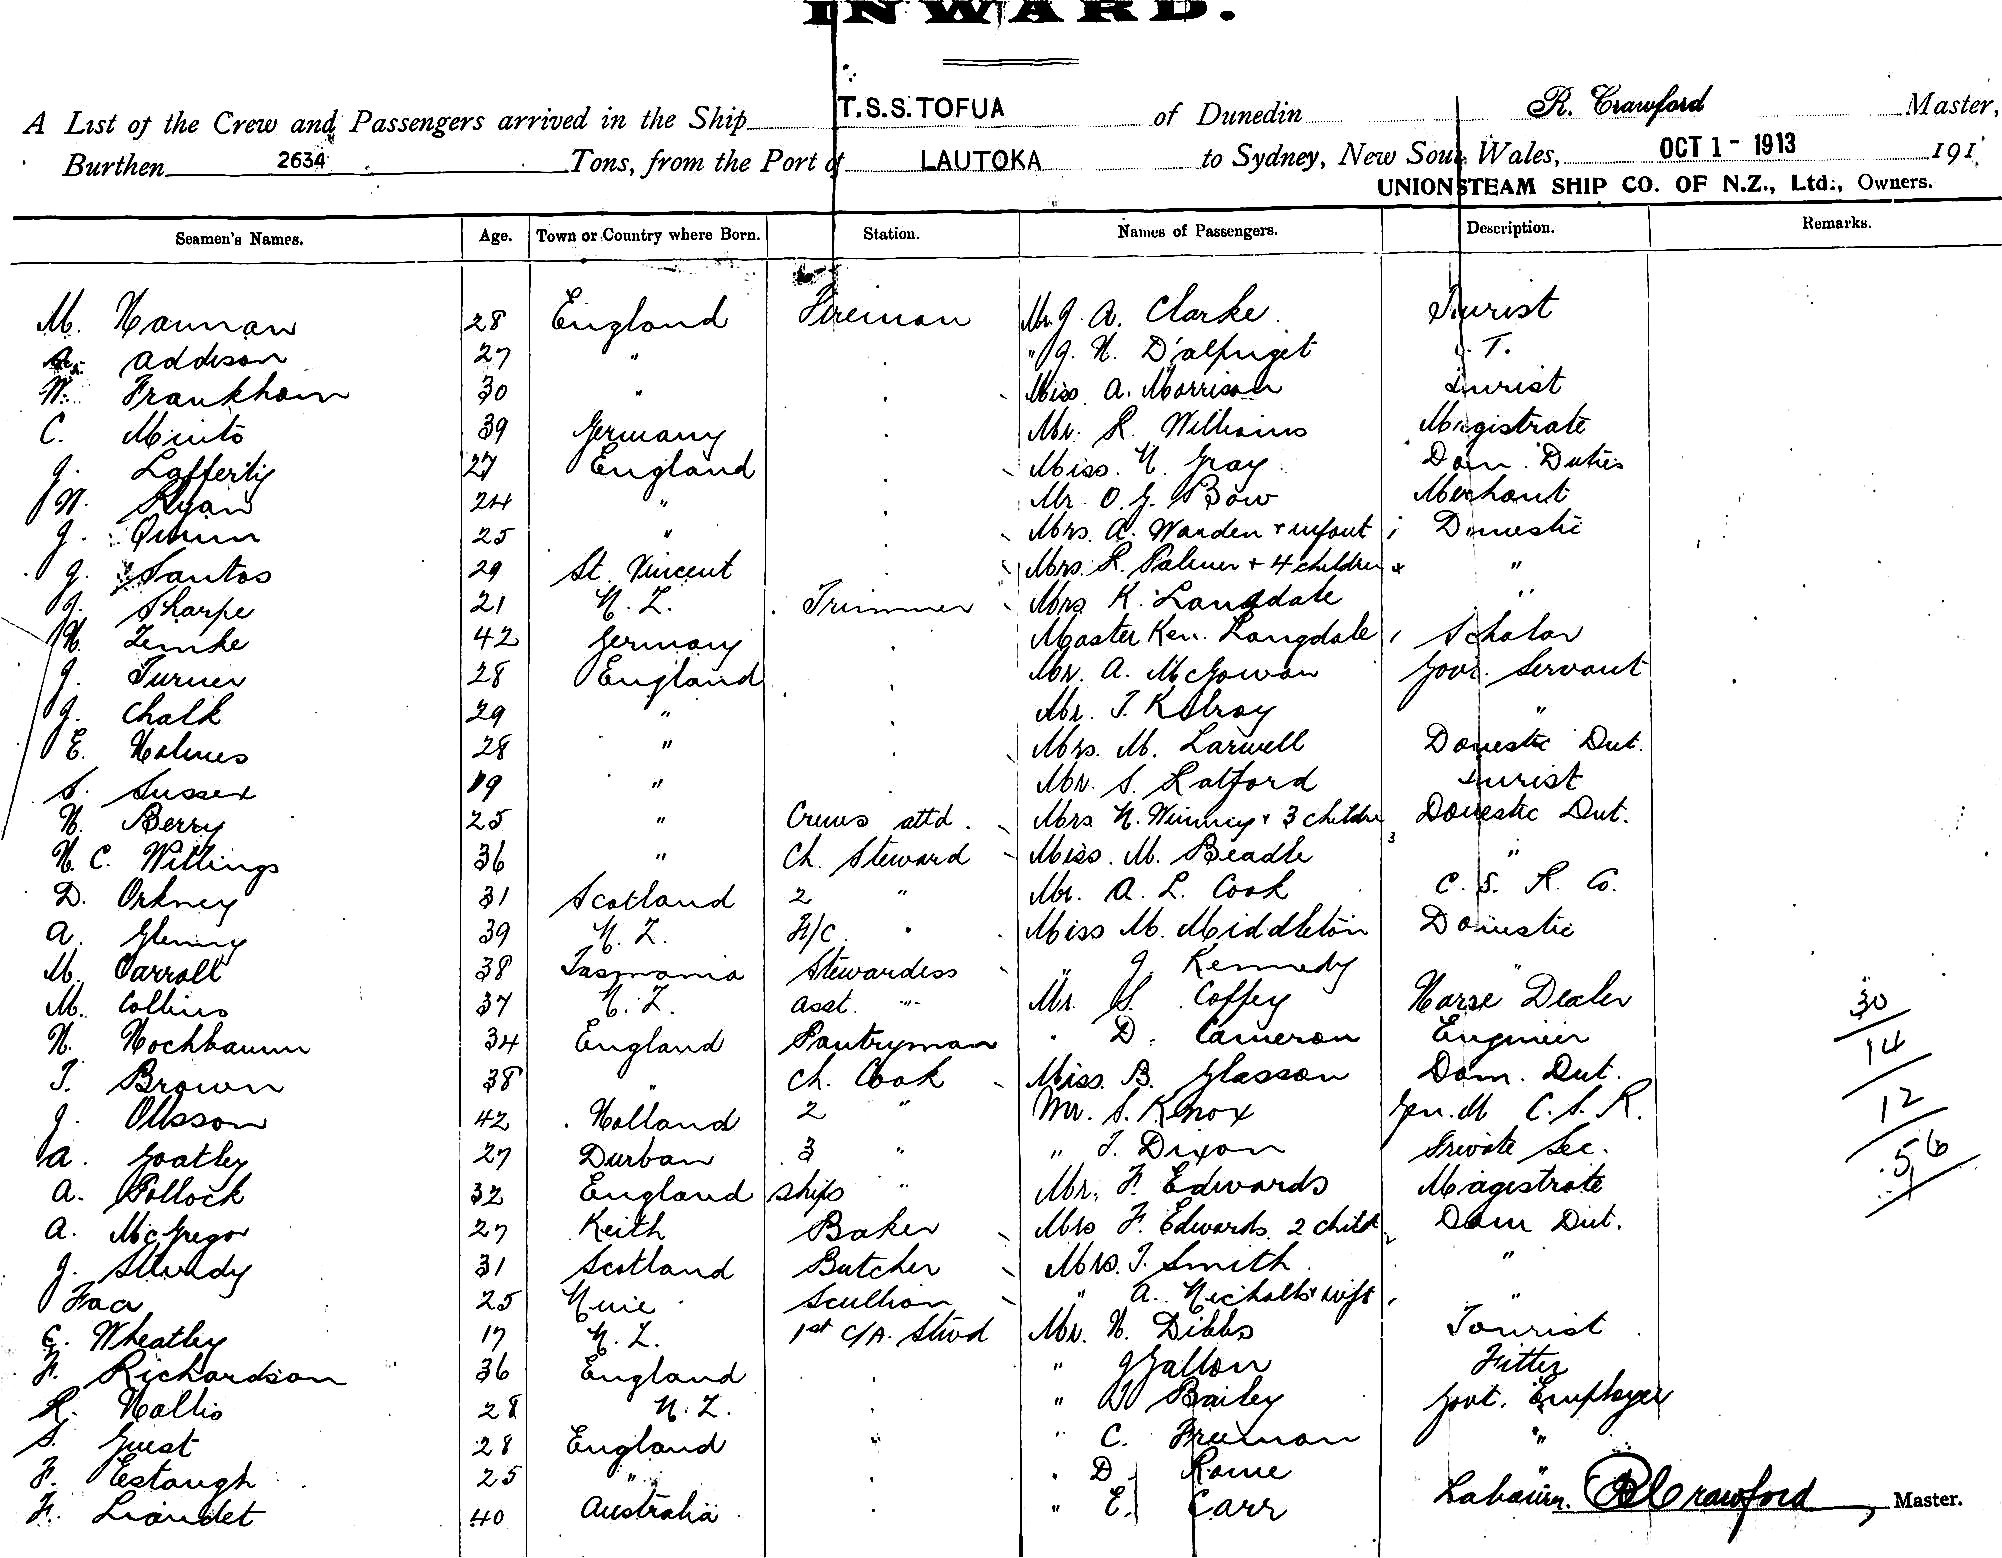 INWARD.
A List of the Crew and Passengers arrived in the Ship T.S.S.TOFUA of Dunedin R. Crawford Master,
Burthen 2634 Tons, from the Port of LAUTOKA to Sydney, New South Wales, OCT 1 - 1913 191
UNION STEAM SHIP CO. OF N.Z., Ltd., Owners.
Seamen's Names. Age. Town or Country where Born. Station. Names of Passengers. Description. Remarks.
M. Hannan 28 England Fireman Mr J. A. Clarke. Tourist
A. Addison 27 " " J. H. D'alpuget T.
W. Frankham 30 " Miss A. Morrison Tourist
C. Minto 39 Germany Mr. R. Williams Magistrate
J. Lafferty 27 England Miss. N. Gray Dom. Duties
W. Ryan 24 " Mr O. J. Bow Merchant
J. Quinn 25 " Mrs. A. Warden + infant 1 Domestic
J. Santos 29 St. Vincent Mrs. R. Palmer + 4 children 4 "
J. Sharpe 21 N. Z. Trimmer Mrs K. Langdale "
H. Zemke 42 Germany Master Ken. Langdale 1 Scholar
J. Turner 28 England Mr. A. McGowan Govt. Servant
J. Chalk 29 " Mr. T. Kilroy "
E. Holmes 28 " Mrs. M. Larwell Domestic Dut.
S. Sussex 19 " Mr. S. Latford Tourist
H. Berry 25 " Crews attd. Mrs N. Winney + 3 childre 3 Domestic Dut.
H. C. Willings 36 " Ch. Steward Miss. M. Beadle "
D. Orkney 31 Scotland 2 " Mr. A. L. Cook C. S. R. Co.
A. Glenny 39 N. Z. F/C " Miss M. Middleton Domestic
M. Carroll 38 Tasmania Stewardess " J. Kennedy "
M. Collins 37 N. Z. Asst. " Mr. S. Coffey Horse Dealer
H. Hochbaum 34 England Pantryman " D. Cameron Engineer
T. Brown 38 " Ch. Cook Miss. B. Glasson Dom. Dut.
J. Ollsson 42 Holland 2 " Mr. S. Knox Gen. M C. S. R.
A. Goatley 27 Durban 3 " " T. Dixon Private Sec.
A. Pollock 32 England Ships " Mr. F. Edwards Magistrate
A. McGregor 27 Keith Baker Mrs F. Edwards 2 child 2 Dom Dut.
J. Sturdy 31 Scotland Butcher Mrs. T. Smith "
Faa 25 Niue Scullion " A. Nicholls + inft 1 "
C. Wheatley 17 N. Z. 1st C/A. Stwd Mr. H. Dibbs Tourist
F. Richardson 36 England " J Gallon Fitter
R. Hallis 28 N. Z. " W Bailey Govt. Employee
S. Guest 28 England " " C. Freeman "
F. Estaugh 25 " " D. Rome "
F. Liardet 40 Australia " E. Carr Labourer.
30
14
12
56
R Crawford, Master.